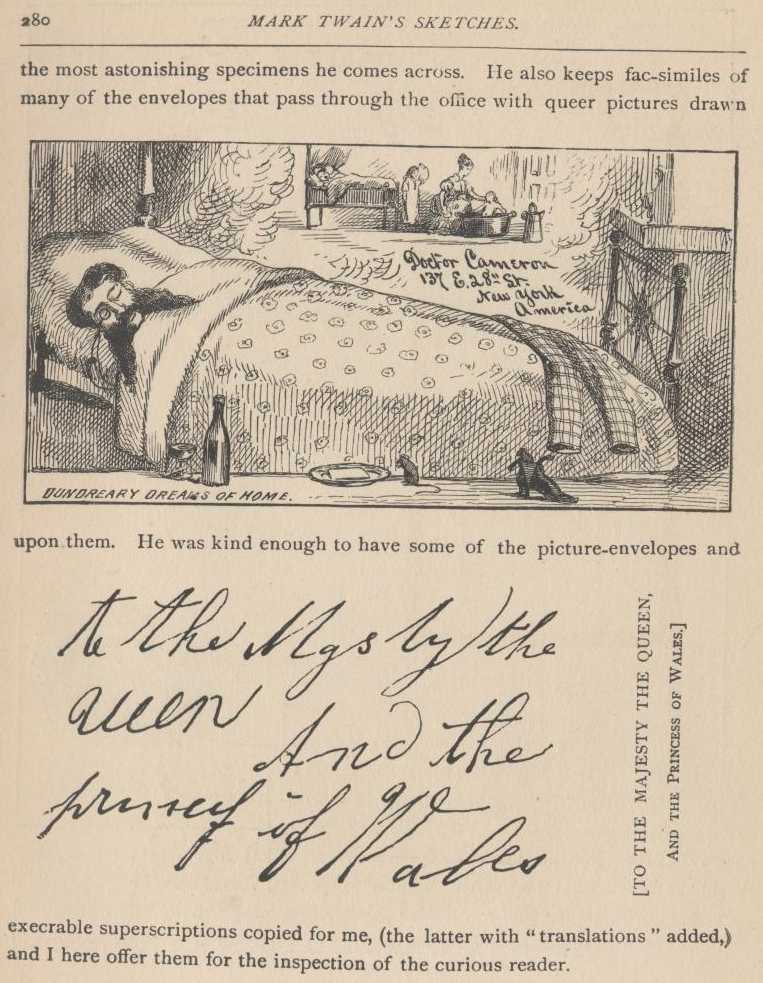 280
MARK TWAIN'S SKETCHES.
the most astonishing specimens he comes across. He also keeps fac-similes of
many of the envelopes that pass through the office with queer pictures drawn
Doctor Cameron
137 E. 28th St.
New York
America
DUNDREARY DREAMS OF HOME.
upon them. He was kind enough to have some of the picture-envelopes and
to the Mgs ty the
queen
And the
prinsess of Wales
[TO THE MAJESTY THE QUEEN,
AND THE PRINCESS OF WALES.]
execrable superscriptions copied for me, (the latter with “translations” added,)
and I here offer them for the inspection of the curious reader.